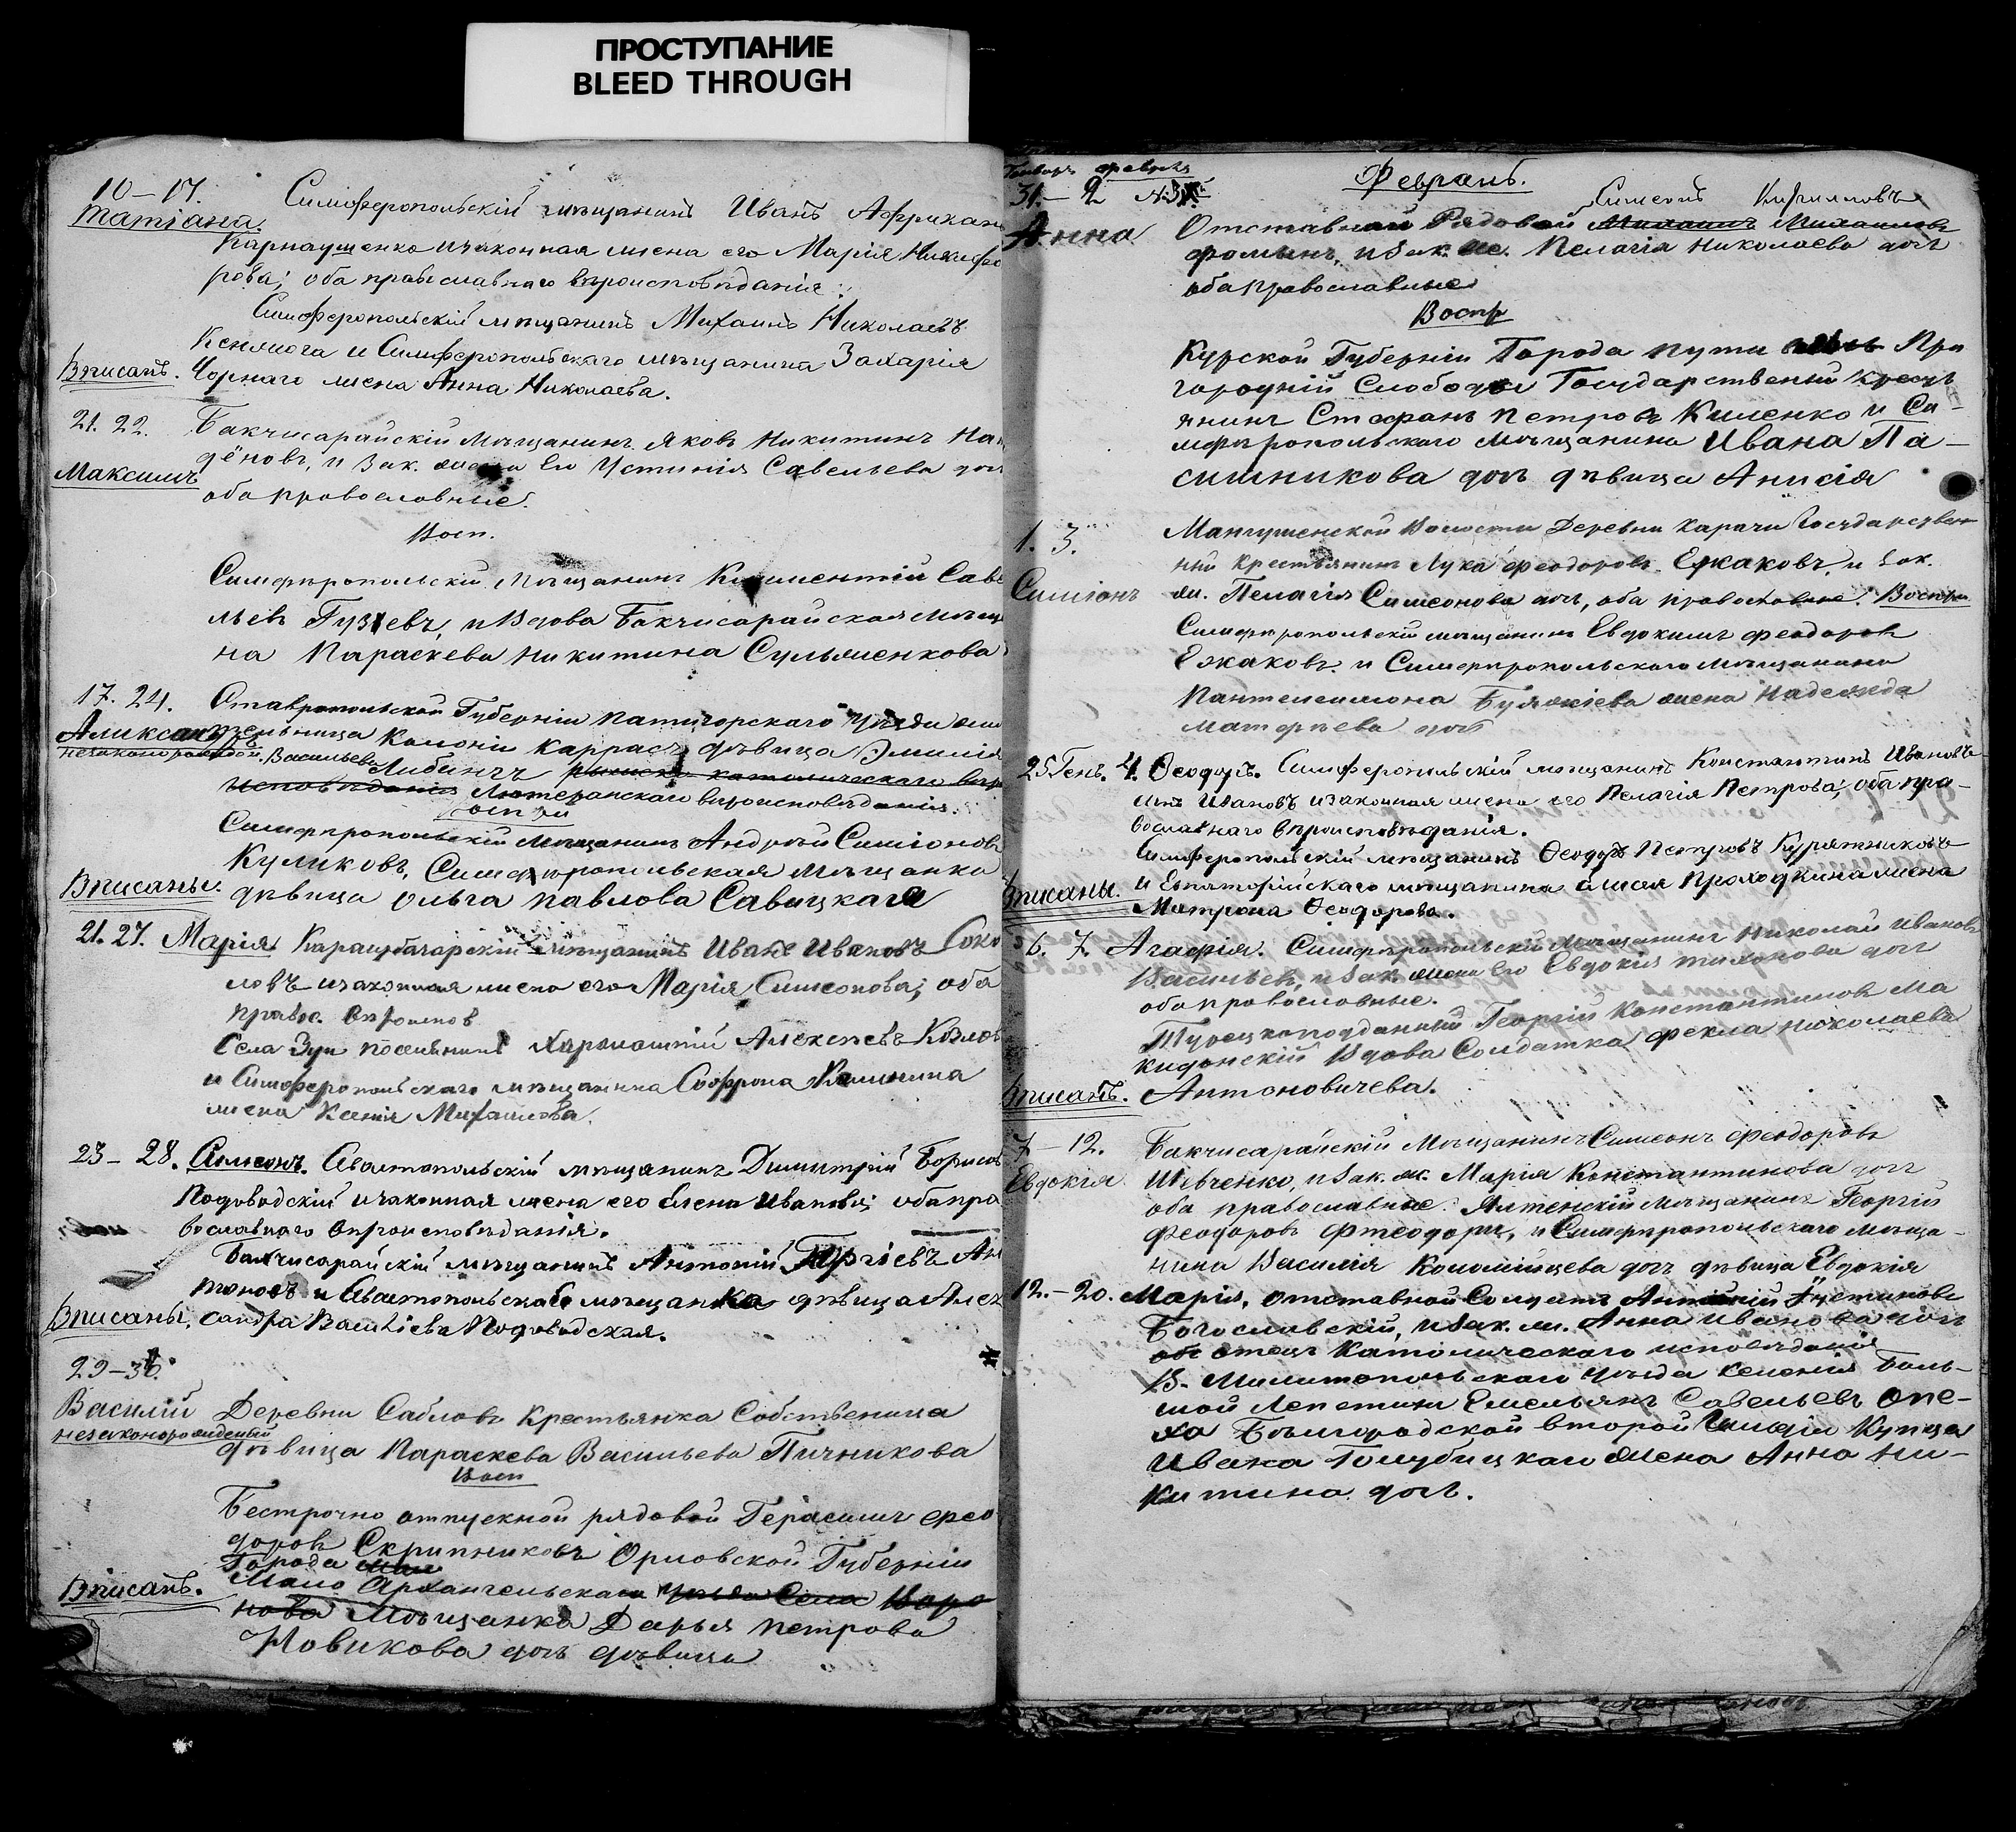 ПРОСТУПАНИЕ
BLEED THROUGH
10–17.
Татіана.
Симферопольскій мѣщанинъ Иванъ Африкан
Карнаушенко и законная жена его Марія Никифо
рова; оба православнаго вѣроисповѣданія.
Симферопольскій мѣщанинъ Михаилъ Николаевъ
и Симферопольскаго мѣщанина Захарія
Вписанъ. Чорнаго жена Анна Николаева.
21. 22.
Максимъ
Бакчисарайскій Мѣщанинъ Яковъ Никитинъ На
дёновъ, и Зак. жена его Устинія Савельева доч
оба православные.
Восп.
Симферопольскій Мѣщанинъ Климентій Саве
льевъ Гузѣевъ, и Вдова Бакчисарайская Мѣща
на Параскева Никитина Сульженкова
17. 24.
Александръ
незаконорожден.
Ставропольской Губерніи Пятигорскаго Уѣзда
Колоніи Каррасъ дѣвица Эмилія
Васильева Либингъ римско католическаго вѣро
исповѣданія Лютеранскаго вѣроисповѣданія.
Симферопольскій Мѣщанинъ Андрей Симіоновъ
Куликовъ, Симферопольская Мѣщанка
Вписаны. дѣвица Ольга Павлова Савицкага
21. 27. Марія Карасубазарскій мѣщанинъ Иванъ Ивановъ Соко
ловъ и законная жена его Марія Симеонова; оба
правос. вѣроиспов
Села Зуи поселянинъ Харлампій Алексѣевъ Козлов
и Симферопольскаго мѣщанина Софрона Калинина
жена Ксенія Михаилова.
23–28. Симеонъ. Севастопольскій мѣщанинъ Димитрій Борисовъ
Подоводскій и законная жена его Елена Иванова; оба пра
вославнаго вѣроисповѣданія.
Бакчисарайскій мѣщанинъ Антоній Гергіевъ Ан
тоновъ и Севастопольская мѣщанка дѣвица Алек
Вписаны. сандра Васильева Подоводская.
29–30.
Василій
незаконорожденый
Деревни Сабловъ Крестьянка Собственица
дѣвица Параскева Васильева Пичникова
Восп
Бестрочно отпускной рядовой Герасимъ Фео
доровъ Скрипниковъ Орловской Губерніи
Города
Вписанъ. Мало Архангельскаго уѣзда Села
Мѣщанка Дарья Петрова
Новикова дочь дѣвица
Январь февраля
31.–2
Февраль.
Анна
Симеонъ Кириловъ
Отставной Рядовой Михаилъ Михаиловъ
Фоминъ, и Зак. же. Пелагія Николаева дочь
оба православные
Воспр
Курской Губерніи Города Пути При
городній Слободы Государственый Кресть
янинъ Стефанъ Петровъ Киленко и Си-
мферопольскаго Мѣщанина Ивана Па-
сишникова дочь дѣвица Анисія
1. 3.
Симіонъ
Мангушенской Волости Деревни Карачи Государствен
ный Крестьянинъ Лука Феодоровъ Ежаковъ, и Зак.
ж. Пелагія Симеонова дочь, оба православные. Воспр
Симферопольскій мѣщанинъ Евдокимъ Феодоровъ
Ежаковъ и Симферопольскаго Мѣщанина
Пантелеимона жена Надежда
Матфѣева дочь
25 Ген. 4. Ѳеодоръ. Симферопольскій мѣщанинъ Константинъ Ивановъ
Ивановъ и законная жена его Пелагія Петрова; оба пра-
вославнаго вѣроисповѣданія.
Симферопольскій мѣщанинъ Ѳеодоръ Петровъ Курятниковъ
Вписаны. и Евпаторійскаго мѣщанина Проходкина жена
Матрона Ѳеодорова.
6. 7. Агафія. Симферопольскій Мѣщанинъ Николай Ивановъ
Васильев, и Зак. жена его Евдокія Тихонова дочь
оба православные.
Турецкоподданный Георгій Константиновъ Ма
кидонскій Вдова Солдатка Фекла Николаева
Вписанъ. Антоновичева.
7–12.
Евдокія
Бакчисарайскій Мѣщанинъ Симеонъ Феодоровъ
Шевченко, и Зак. ж. Марія Константинова дочь
оба православные. Ялтенскій Мѣщанинъ Георгій
Феодоровъ и Симферопольскаго Мѣща-
нина Василія Коломійцева дочь дѣвица Евдокія
12.–20. Марія, Отставной Солдатъ Антоній Іустиновъ
Богословскій, и Зак. ж. Анна Иванова дочь
отецъ Католическаго исповѣданія
В. Мелитопольскаго Уѣзда Селенія Боль-
шой Лепетихи Емельянъ Савельевъ Опе-
ха Бѣлгородской второй Гильдіи Купца
Ивана Голубицкаго Жена Анна Ни-
китина дочь.